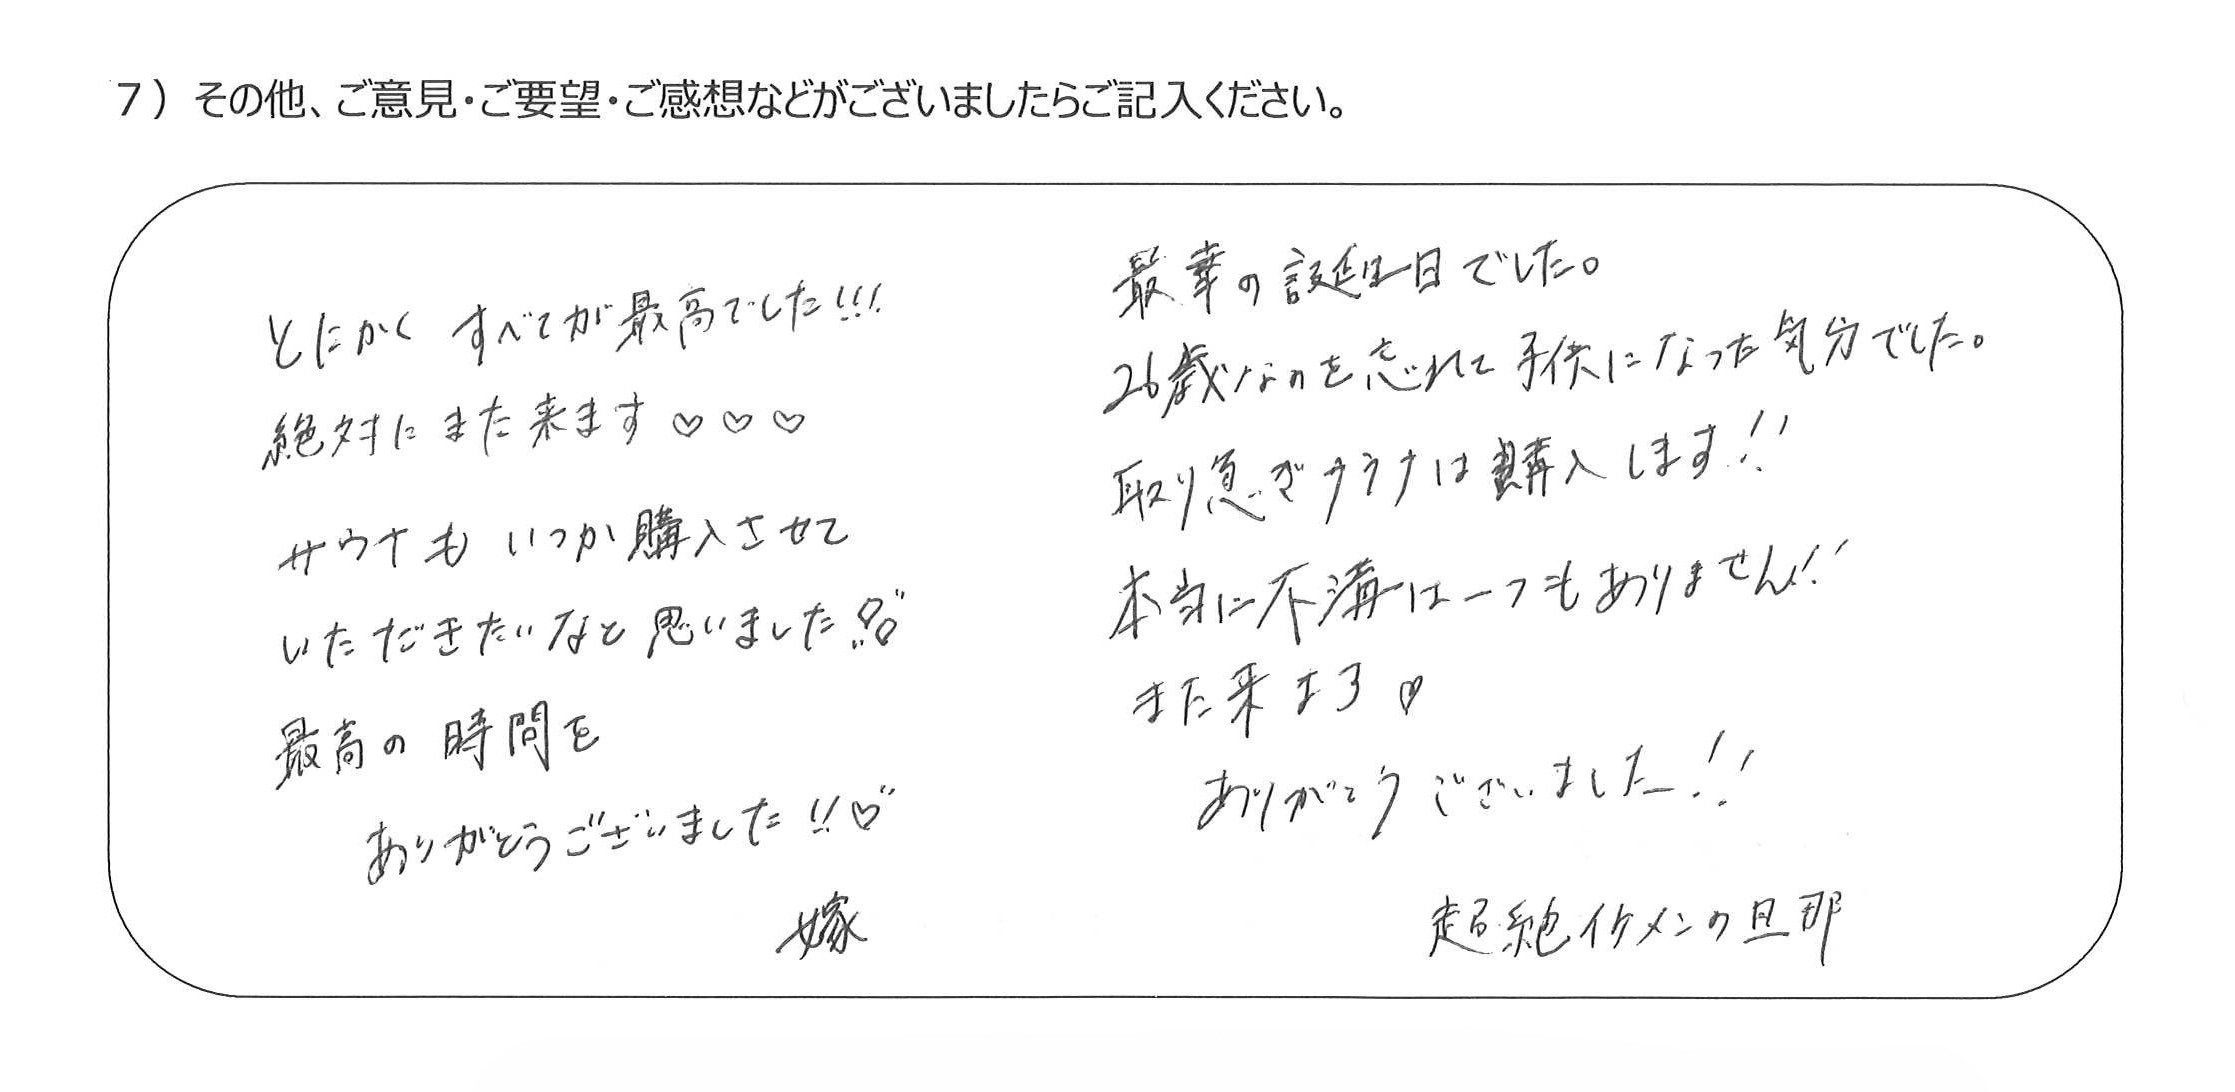 7）その他、ご意見・ご要望・ご感想などがございましたらご記入ください。
とにかく すべてが最高でした!!!
絶対にまた来ます♡♡♡
サウナも いつか購入させて
いただきたいなと思いました!!
最高の時間を
ありがとうございました!!♡
嫁
最幸の誕生日でした。
26歳なのを忘れて子供になった気分でした。
取り急ぎサウナは購入します!!
本当に不満は一つもありません!!
また来ます♡
ありがとうございました!!
超絶イケメンの旦那